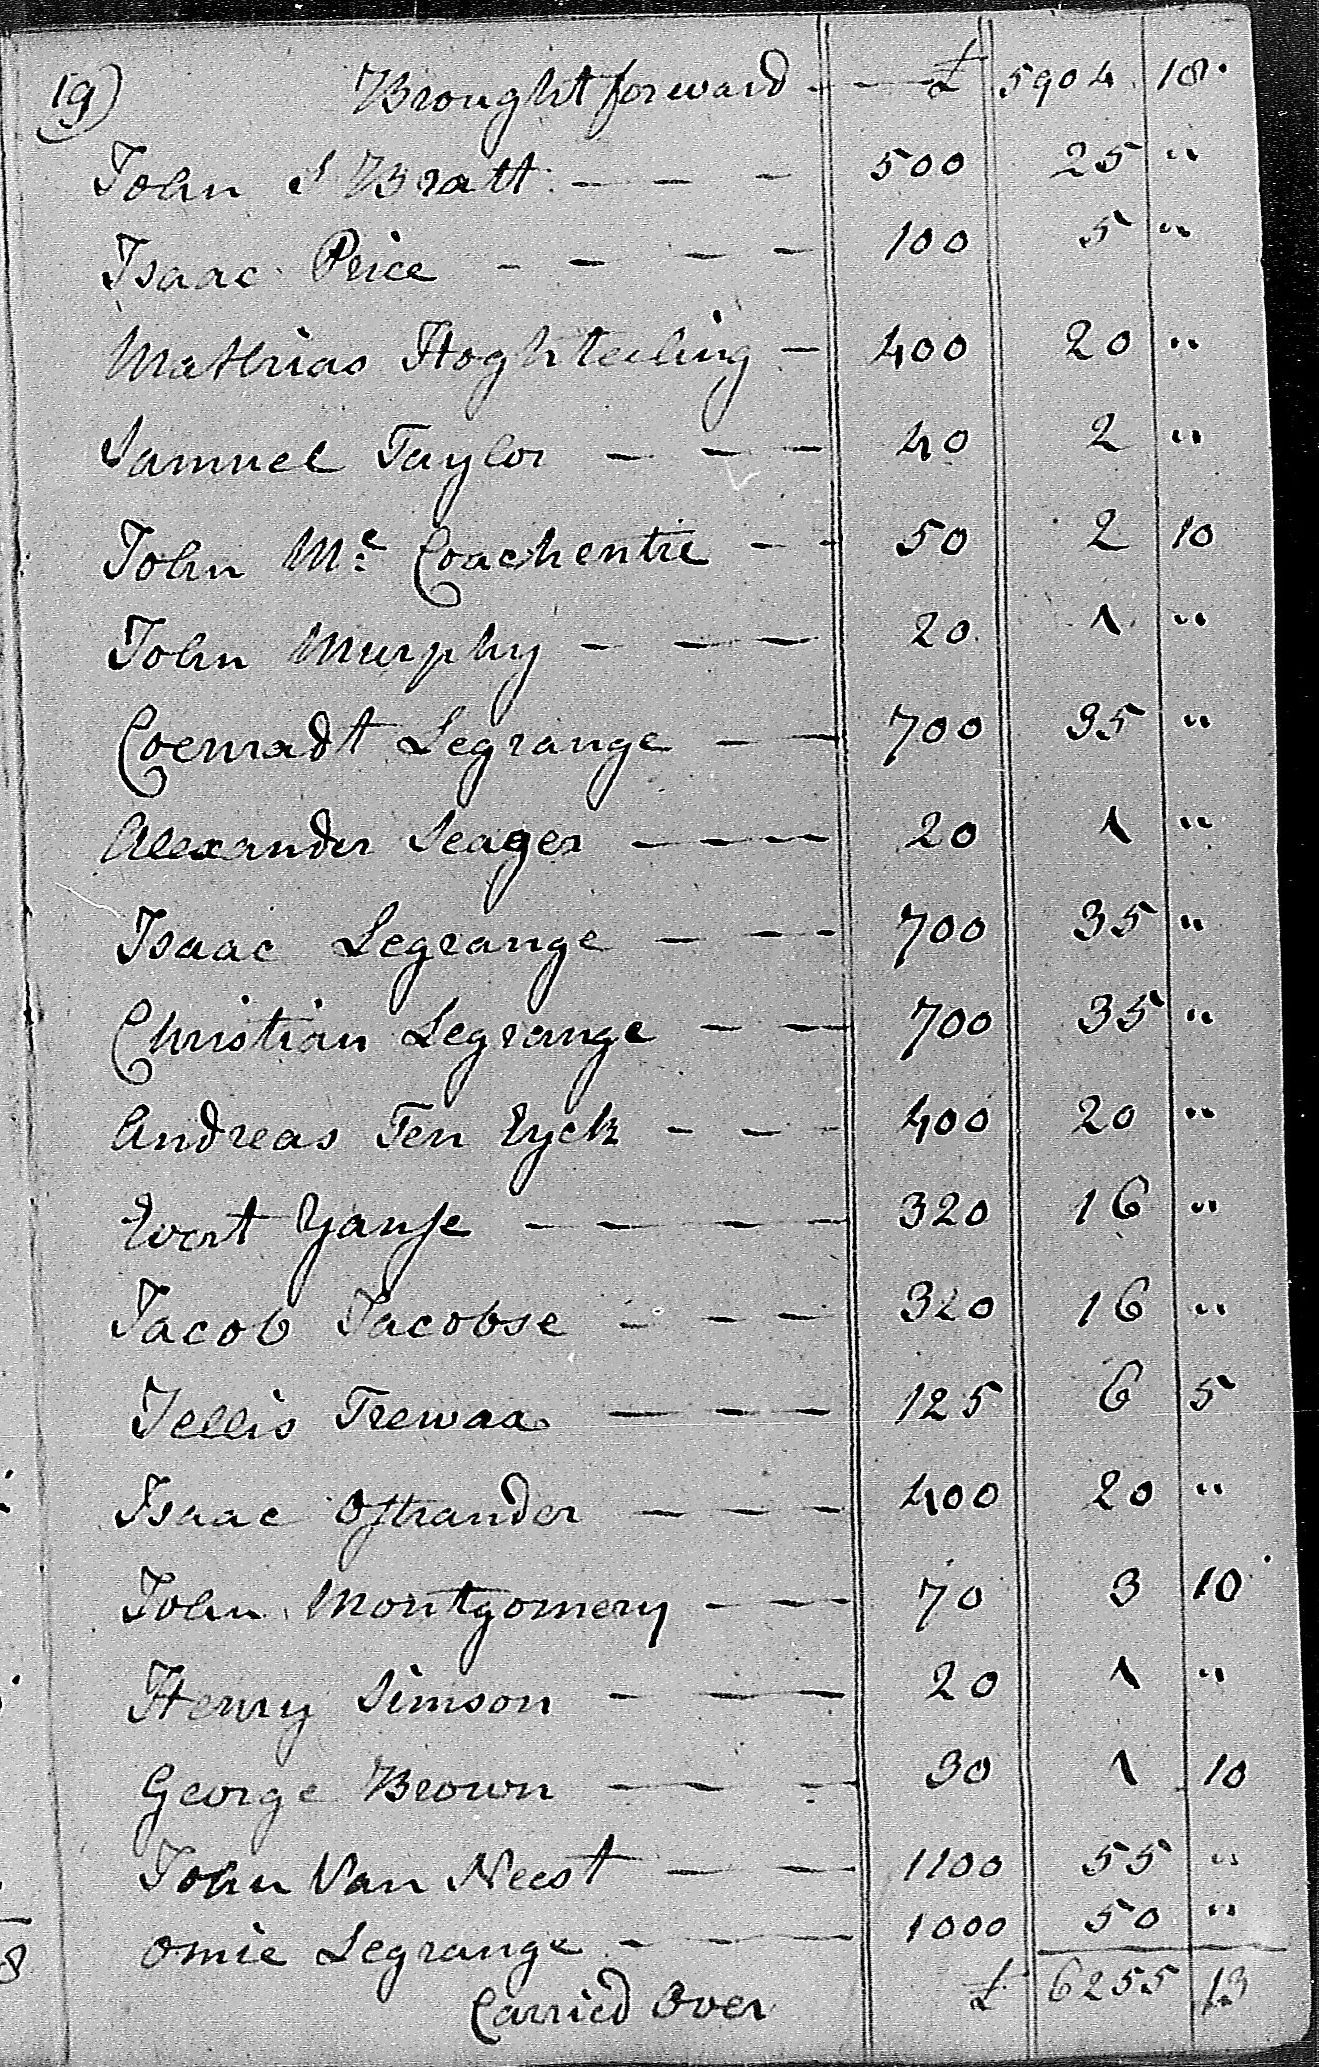 19) Brought forward - - £ 5904 18
John S Bratt: - - - 500 25 "
Isaac Price - - - - 100 5 "
Mathias Hoghteeling - 400 20 "
Samuel Taylor - - - 40 2 "
John Mc: Coachentie - - 50 2 10
John Murphy - - - 20 1 "
Coenradt Legrange - - 700 35 "
Alexander Seager - - - 20 1 "
Isaac Legrange - - - 700 35 "
Christian Legrange - - 700 35 "
Andreas Ten Eyck - - - 400 20 "
Evert Yanse - - - - 320 16 "
Jacob Jacobse - - - 320 16 "
Jellis Trewaa - - - 125 6 5
Isaac Ostrander - - - 400 20 "
John Montgomery - - - 70 3 10
Henry Simson - - - 20 1 "
George Brown - - - 30 1 10
John Van Neest - - - 1100 55 "
Omie Legrange - - - 1000 50 "
Carried Over £ 6255 13